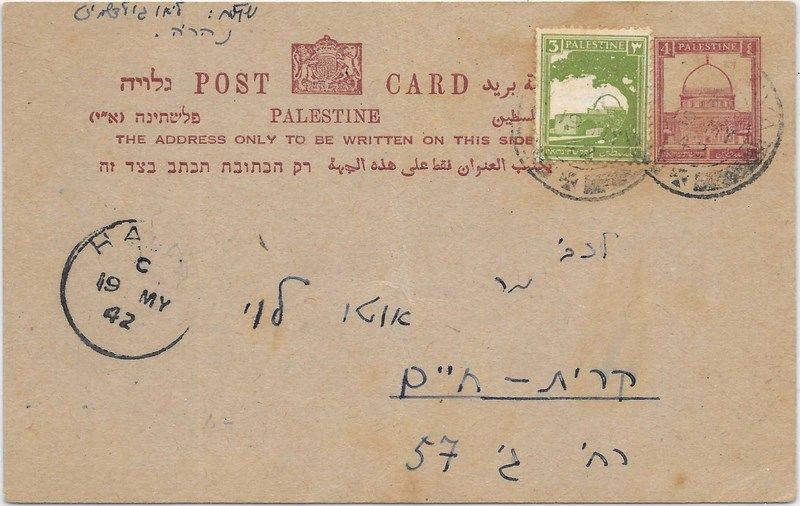 שולח: ליאו גולדשמידט
נהריה.
גלויה POST CARD بريد
פלשתינה (א״י) PALESTINE فلسطين
THE ADDRESS ONLY TO BE WRITTEN ON THIS SIDE
רק הכתובת תכתב בצד זה يكتب العنوان فقط على هذه الجهة
3 PALESTINE ٣
4 PALESTINE ٤
19 MY 42
לכב׳
מר
אוטו לוי
קרית - חיים
רח׳ ג׳ 57
HA
C
19 MY
42